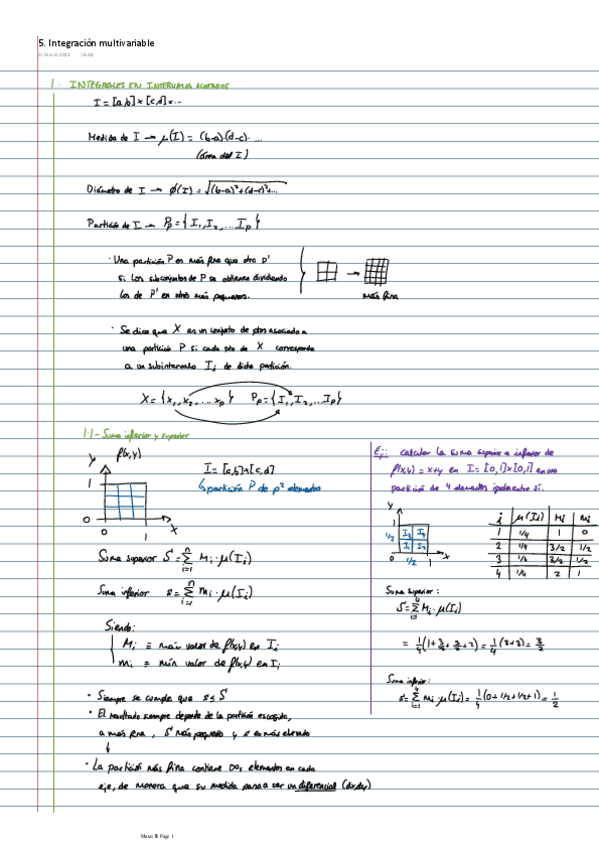 5. Integración multivariable
1. INTEGRALES EN INTERVALOS ACOTADOS
I = [a,b] x [c,d] x ...
Medida de I → μ(I) = (b-a)·(d-c)· ...
(área del I)
Diámetro de I → ϕ(I) = √((b-a)²+(d-c)²+...
Partición de I → Pp = { I₁, I₂, ... Ip }
· Una partición P es más fina que otra P'
si los subconjuntos de P se obtienen dividiendo
los de P' en otros más pequeños.
más fina
· Se dice que X es un conjunto de ptos asociado a
una partición P si cada pto de X corresponde
a un subintervalo Ii de dicha partición.
X = { x₁, x₂, ... xp } Pp = { I₁, I₂, ... Ip }
1.1 - Suma inferior y superior
y f(x,y)
I = [a,b] x [c,d]
↳ partición P de p² elementos
1
0
0 1 x
Suma superior S = Σ i=1 n Mi · μ(Ii)
Suma inferior s = Σ i=1 n mi · μ(Ii)
Siendo:
Mi ≡ max valor de f(x,y) en Ii
mi ≡ min valor de f(x,y) en Ii
· Siempre se cumple que s ≤ S
· El resultado siempre depende de la partición escogida,
a más fina, S más pequeño y s es más elevado
↓
· La partición más fina contiene dos elementos en cada
eje, de manera que su medida pasa a ser un diferencial (dx,dy)
Ej: calcular la suma superior e inferior de
f(x,y) = x+y en I = [0,1] x [0,1] en una
partición de 4 elementos iguales entre sí.
y
1
1/2
0 1/2 1 x
i μ(Ii) Mi mi
1 1/4 1 0
2 1/4 3/2 1/2
3 1/4 3/2 1/2
4 1/4 2 1
Suma superior:
S = Σ i=1 4 Mi · μ(Ii)
= 1/4 (1 + 3/2 + 3/2 + 2) = 1/4 (3+3) = 3/2
Suma inferior:
s = Σ i=1 4 mi · μ(Ii) = 1/4 (0 + 1/2 + 1/2 + 1) = 1/2
Mates II Page 1